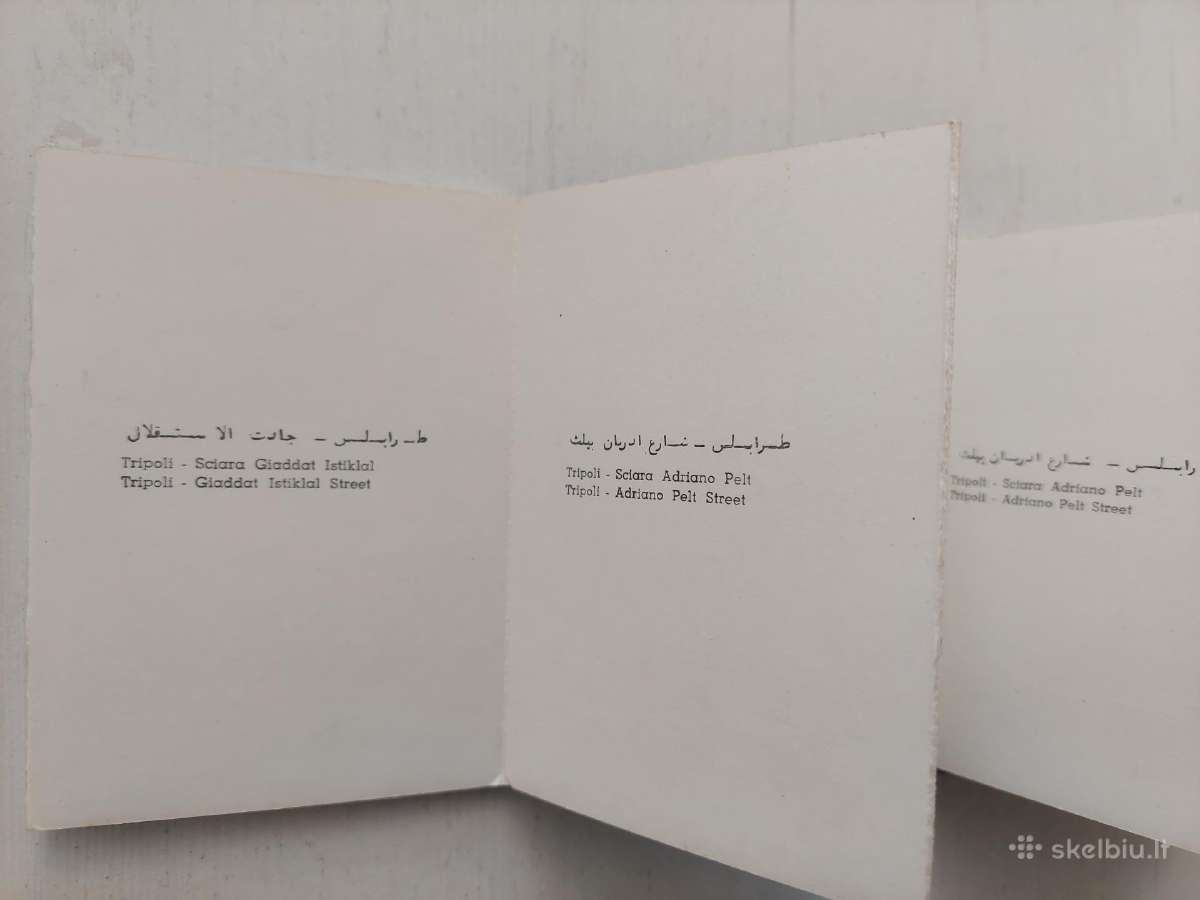 طـرابـلـس - جادت الاستـقـلال
Tripoli - Sciara Giaddat Istiklal
Tripoli - Giaddat Istiklal Street
طـرابـلـس - شـارع ادريان بيلت
Tripoli - Sciara Adriano Pelt
Tripoli - Adriano Pelt Street
رابـلـس - شـارع ادريـان بيلت
Tripoli - Sciara Adriano Pelt
Tripoli - Adriano Pelt Street
skelbiu.lt